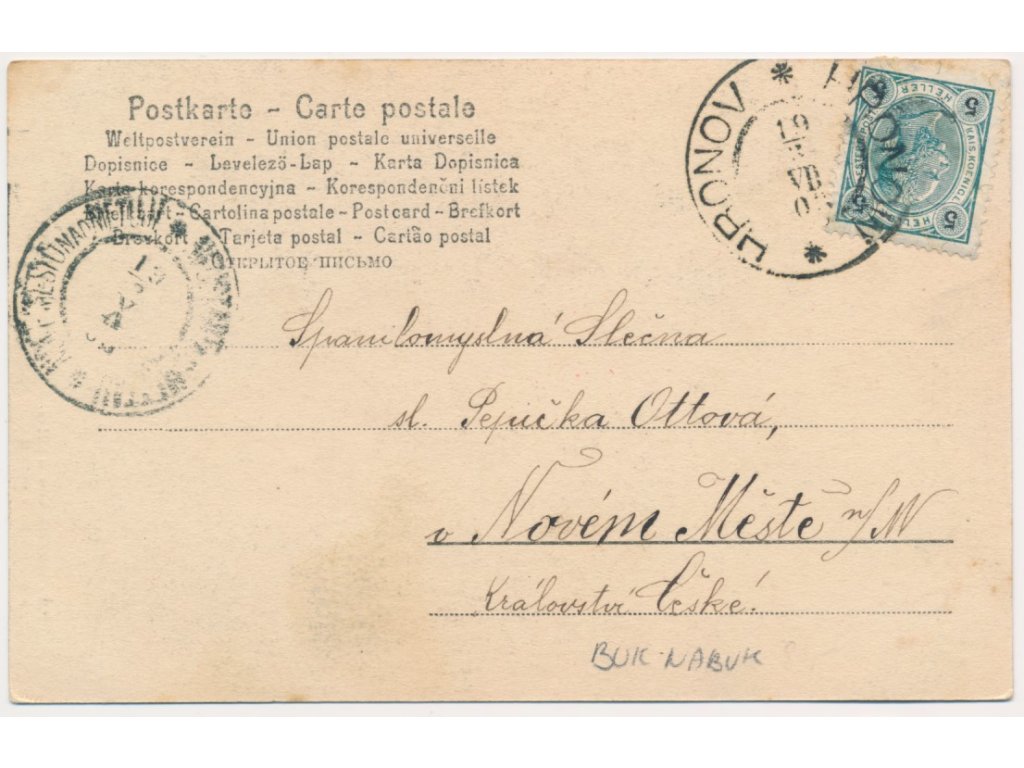 Postkarte - Carte postale
Weltpostverein - Union postale universelle
Dopisnice - Levelező-Lap - Karta Dopisnica
Karta korespondencyjna - Korespondenční listek
Briefkort - Cartolina postale - Postcard - Brefkort
Brevkort - Tarjeta postal - Cartão postal
ОТКРЫТОЕ ПИСЬМО
HRONOV * HRONOV *
19
VII
5 HELLER 5
KAIS. KOENIGL.
5 HELLER 5
Spanilomyslná Slečna
sl. Pepička Ottová,
v Novém Městě n/M
Království České.
BUK NABUK